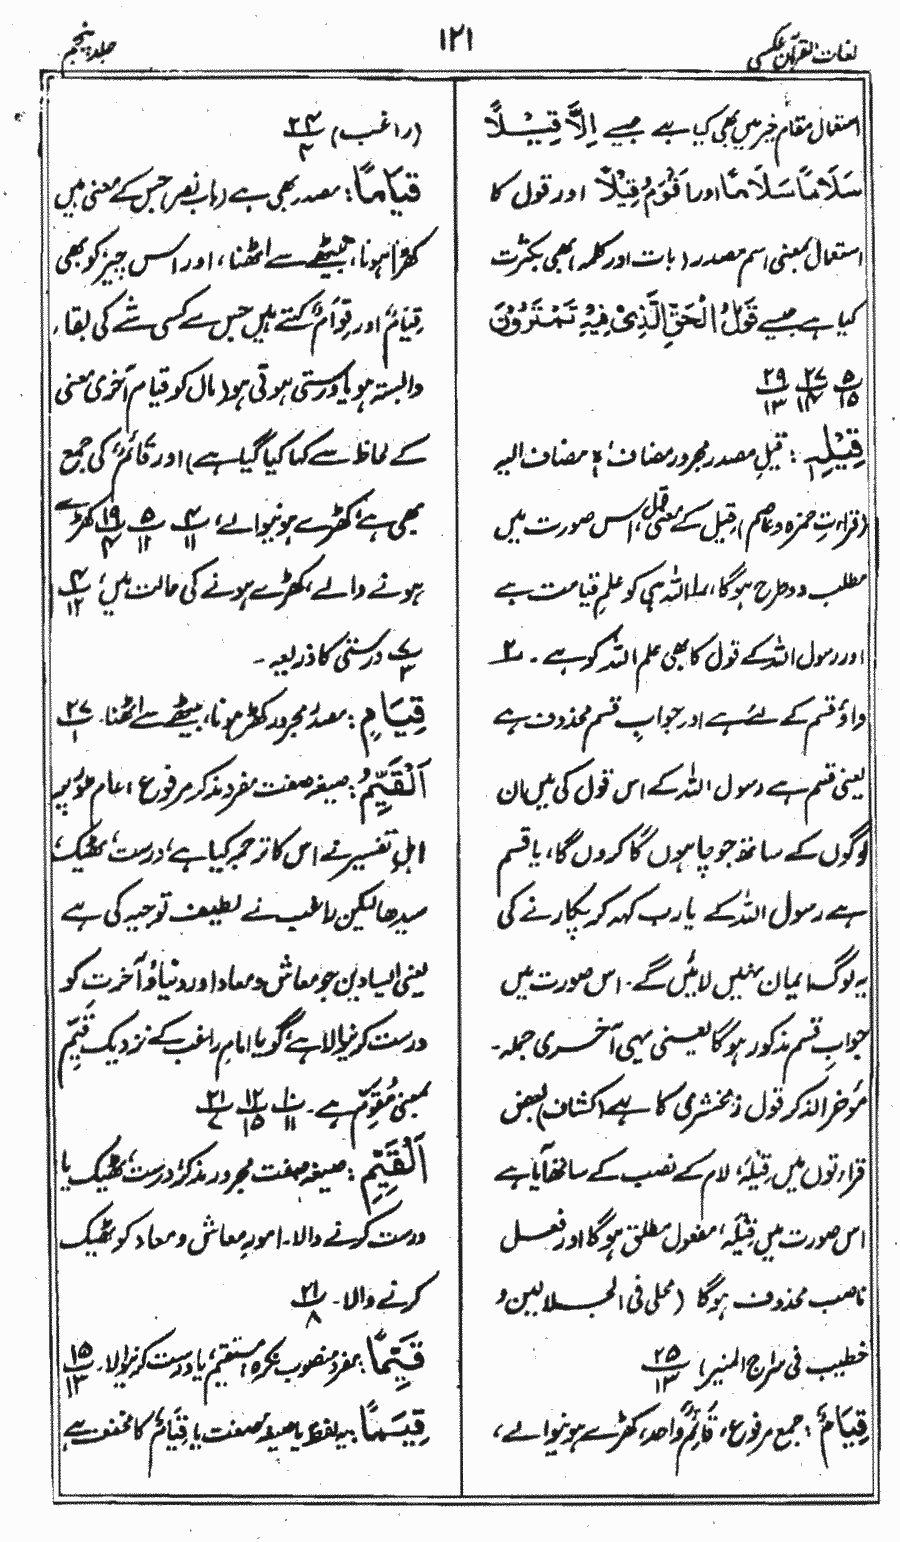 لغات القرآن عکسی
۱۲۱
جلد پنجم
استعمال مقام خبر میں بھی کیا ہے جیسے اِلَّا قِیْلًا
سَلَامًا سَلَامًا اور اَقْوَمُ قِیْلًا اور قول کا
استعمال بمعنی اسم مصدر (بات اور کلمہ) بھی بکثرت
کیا ہے جیسے قَوْلُ الْحَقِّ الَّذِیْ فِیْہِ تَمْتَرُوْنَ
۵/۱۵ ۲۷/۱۴ ۲۹/۱۳
قِیْلِہٖ : قیلِ مصدر مجرور مضاف ہٖ مضاف الیہ
(قراءتِ حمزہ و عاصم) قیل کے معنی قول، اس صورت میں
مطلب دو طرح ہوگا، ۱۔ اللہ ہی کو علمِ قیامت ہے
اور رسول اللہ کے قول کا بھی علم اللہ کو ہے۔ ۲
واؤ قسم کے لئے ہے اور جوابِ قسم محذوف ہے
یعنی قسم ہے رسول اللہ کے اس قول کی میں ان
لوگوں کے ساتھ جو چاہوں گا کروں گا، یا قسم
ہے رسول اللہ کے یارب کہہ کر پکارنے کی
یہ لوگ ایمان نہیں لائیں گے۔ اس صورت میں
جوابِ قسم مذکور ہوگا یعنی یہی آخری جملہ۔
مؤخر الذکر قول زمخشری کا ہے (کشاف) بعض
قراءتوں میں قِیْلَہٗ، لام کے نصب کے ساتھ آیا ہے
اس صورت میں قِیْلَہٗ، مفعول مطلق ہوگا اور فعل
ناصب محذوف ہوگا (محلی فی الجلالین و
خطیب فی سراج المنیر) ۲۵/۱۳
قِیَامٌ : جمع مرفوع، قَائِمٌ واحد، کھڑے ہونیوالے،
(راغب) ۲۴/۴
قِیَامًا : مصدر بھی ہے (باب نصر) جس کے معنی ہیں
کھڑا ہونا، بیٹھے سے اٹھنا، اور اس چیز کو بھی
قِیَامٌ اور قِوَامٌ کہتے ہیں جس سے کسی شے کی بقاء
وابستہ ہو یا درستی ہوتی ہو (مال کو قیام آخری معنی
کے لحاظ سے کہا گیا ہے) اور قَائِمٌ کی جمع
بھی ہے، کھڑے ہونیوالے، ۴/۱۱ ۵/۱۲ ۱۹/۴ کھڑے
ہونے والے، کھڑے ہونے کی حالت میں، ۴/۱۲
۷/۳ درستی کا ذریعہ۔
قِیَامٍ : مصدر مجرور کھڑا ہونا، بیٹھے سے اٹھنا۔ ۲۷/۱
اَلْقَیِّمُ : صیغہ صفت مفرد مذکر مرفوع، عام طور پر
اہلِ تفسیر نے اس کا ترجمہ کیا ہے، درست، ٹھیک،
سیدھا لیکن راغب نے لطیف توجیہ کی ہے
یعنی ایسا دین جو معاش و معاد اور دنیا و آخرت کو
درست کرنیوالا ہے، گویا امام راغب کے نزدیک قَیِّمٌ
بمعنی مُقَوِّمٌ ہے۔ ۱۰/۱۱ ۱۲/۱۵ ۲۱/۷
اَلْقَیِّمِ : صیغہ صفت مجرور مذکر، درست، ٹھیک یا
درست کرنے والا۔ امورِ معاش و معاد کو ٹھیک
کرنے والا۔ ۲۱/۸
قَیِّمًا : مفرد منصوب نکرہ، مستقیم، یا درست کرنیوالا۔ ۱۵/۱۳
قِیَمًا : یہ لفظ یا صیغہ صفت یا قِیَامٌ کا مخفف ہے